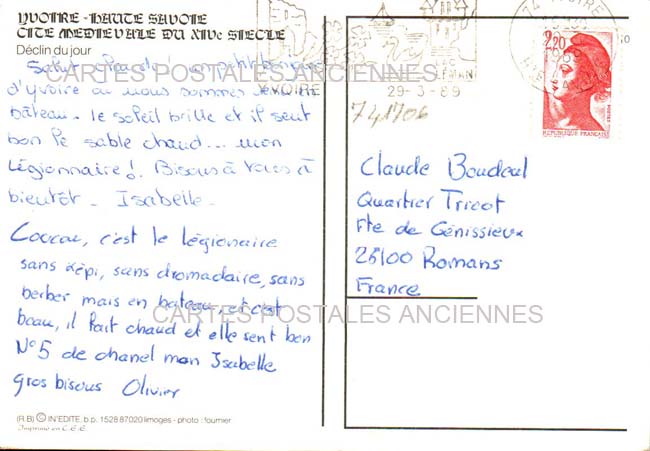 YVOIRE - HAUTE SAVOIE
CITE MEDIEVALE DU XIVe SIECLE
Déclin du jour
Salut Claude! un petit bonjour
d'Yvoire où nous sommes venu en
bâteau. le soleil brille et il sent
bon le sable chaud... mon
légionnaire! Bisous à vous à
bientôt. Isabelle.
Coucou, c'est le légionaire
sans képi, sans dromadaire, sans
berber mais en bateau, et c'est
beau, il fait chaud et elle sent bon
N°5 de chanel mon Isabelle
gros bisous Olivier
(R.B) © IN'EDITE, b.p. 1528 87020 limoges - photo : fournier
Imprimé en C.E.E.
YVOIRE
LAC
LEMAN
29-3-89
74 YVOIRE
2,20
REPUBLIQUE FRANÇAISE
741706
Claude Boudeul
Quartier Tricot
Rte de Génissieux
26100 Romans
France
CARTES POSTALES ANCIENNES
CARTES POSTALES ANCIENNES